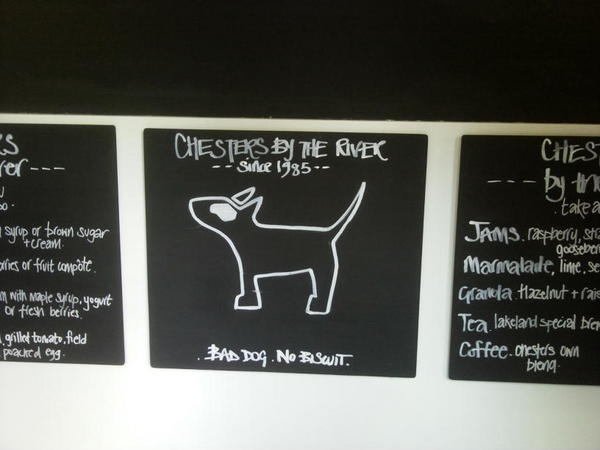 syrup or brown sugar
+ cream.
or fruit compôte.
with maple syrup, yogurt
or fresh berries.
grilled tomato, field
poached egg.
CHESTERS BY THE RIVER
-- since 1985 --
. BAD DOG. NO BISCUIT.
by the
. take a
JAMS. raspberry,
gooseber
Marmalade, lime,
Granola. Hazelnut + rais
Tea. lakeland special
Coffee. chesters own
blend.